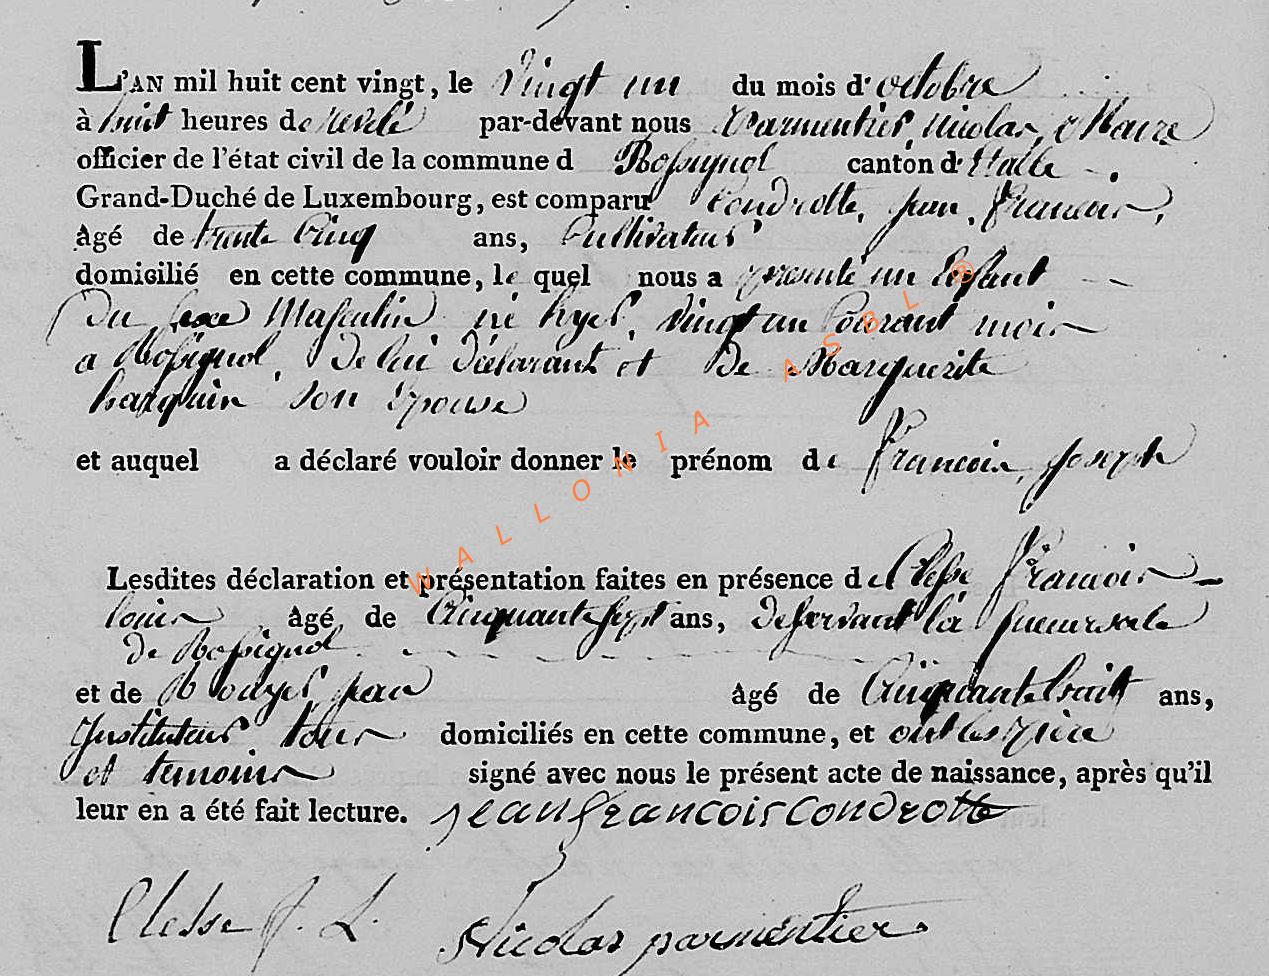 L'AN mil huit cent vingt, le vingt un du mois d'octobre
à huit heures de relevé par-devant nous Parmentier, nicolas, Maire
officier de l'état civil de la commune d Rossignol canton d'Etalle
Grand-Duché de Luxembourg, est comparu Condrotte, jean, francois,
âgé de trente cinq ans, Cultivateur
domicilié en cette commune, le quel nous a presenté un Enfant
du sexe Masculin né hyer, vingt un Courant mois
a Rossignol, de lui déclarant et de Marguerite
harquin son Epouse
et auquel a déclaré vouloir donner le prénom de francois, joseph
WALLONIA ASBL ®
Lesdites déclaration et présentation faites en présence de Clesse francois
louis âgé de Cinquante sept ans, desservant la succursale
de Rossignol
et de jean âgé de Cinquante huit ans,
Instituteur tous domiciliés en cette commune, et ont les père
et temoins signé avec nous le présent acte de naissance, après qu'il
leur en a été fait lecture. jean francois condrotte
Clesse f. L. Nicolas parmentier